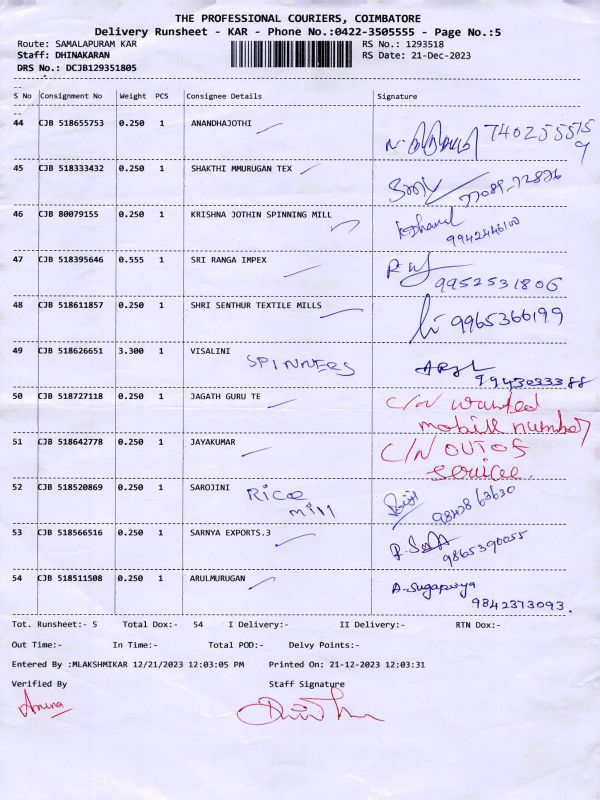 THE PROFESSIONAL COURIERS, COIMBATORE
Delivery Runsheet - KAR - Phone No.:0422-3505555 - Page No.:5
Route: SAMALAPURAM KAR RS No.: 1293518
Staff: DHINAKARAN RS Date: 21-Dec-2023
DRS No.: DCJB129351805
S No Consignment No Weight PCS Consignee Details Signature
44 CJB 518655753 0.250 1 ANANDHAJOTHI
45 CJB 518333432 0.250 1 SHAKTHI MMURUGAN TEX
46 CJB 80079155 0.250 1 KRISHNA JOTHIN SPINNING MILL
9942446100
47 CJB 518395646 0.555 1 SRI RANGA IMPEX
9952531806
48 CJB 518611857 0.250 1 SHRI SENTHUR TEXTILE MILLS
9965366199
49 CJB 518626651 3.300 1 VISALINI
SPINNERS
9943033388
50 CJB 518727118 0.250 1 JAGATH GURU TE C/N wanted
mobile number
51 CJB 518642778 0.250 1 JAYAKUMAR C/N OUT OF
service.
52 CJB 518520869 0.250 1 SAROJINI Rice
mill
53 CJB 518566516 0.250 1 SARNYA EXPORTS.3
9865390055
54 CJB 518511508 0.250 1 ARULMURUGAN A-Sugapriya
9842373093.
Tot. Runsheet:- 5 Total Dox:- 54 I Delivery:- II Delivery:- RTN Dox:-
Out Time:- In Time:- Total POD:- Delvy Points:-
Entered By :MLAKSHMIKAR 12/21/2023 12:03:05 PM Printed On: 21-12-2023 12:03:31
Verified By Staff Signature